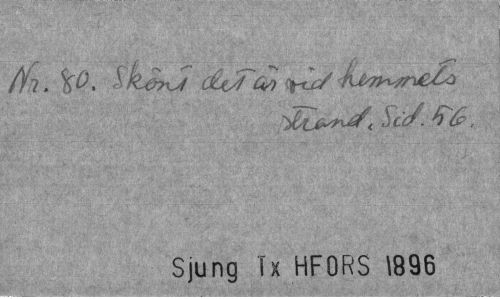 Nr. 80. Skönt det är vid hemmets
strand. Sid. 56.
Sjung Tx HFORS 1896